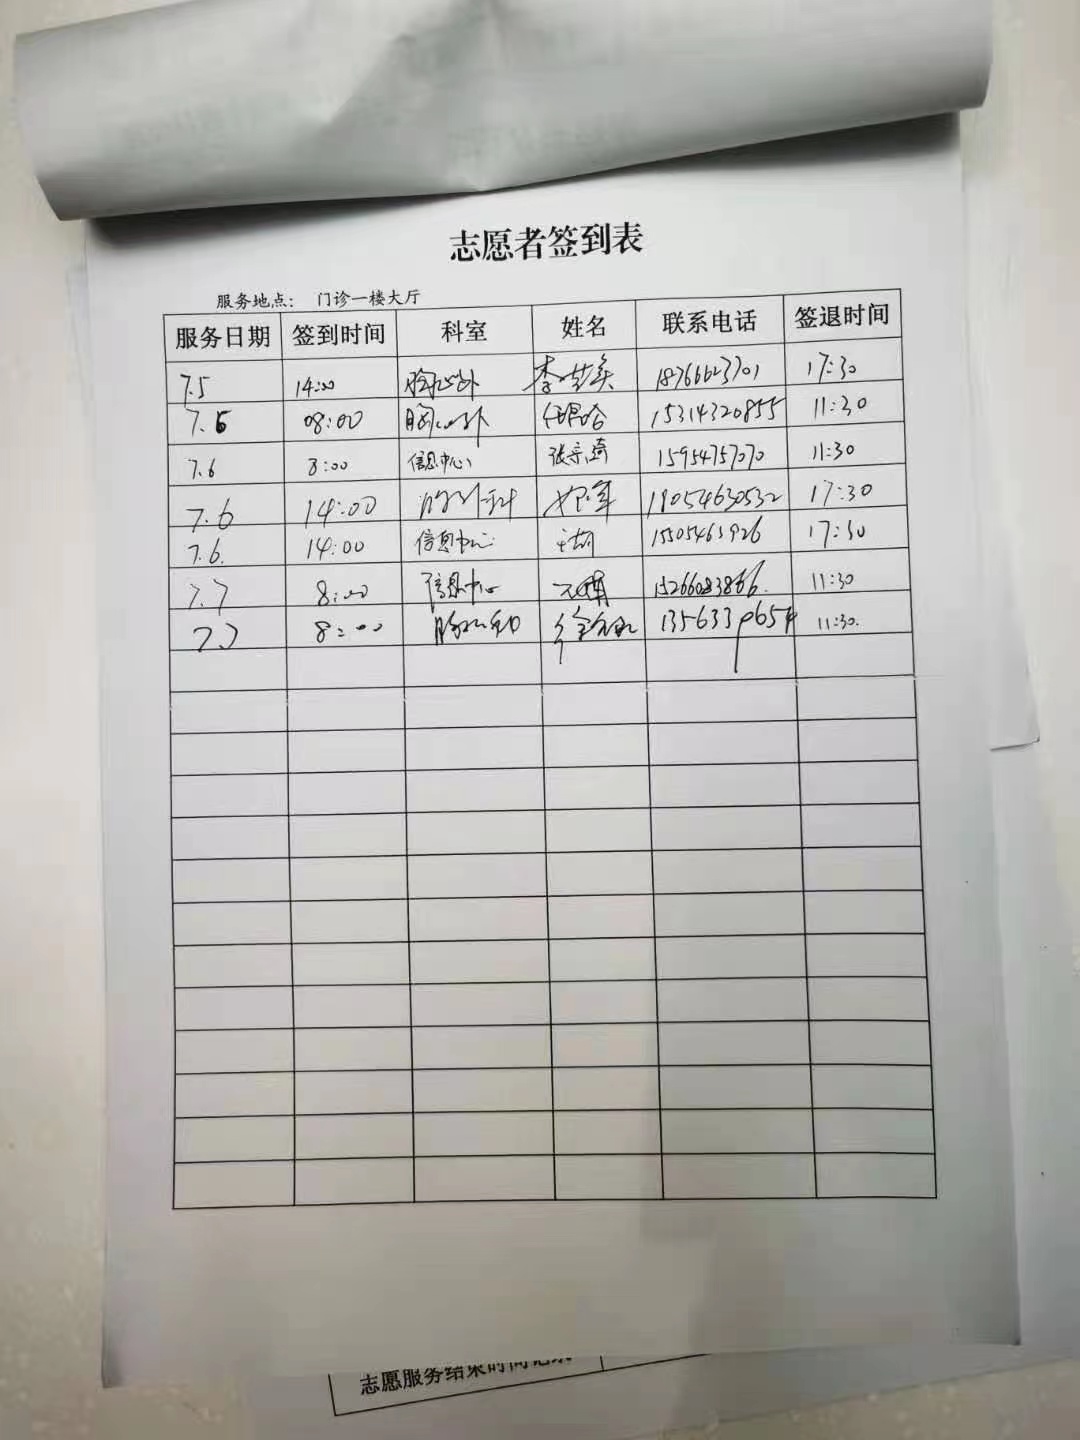 志愿者签到表
服务地点： 门诊一楼大厅
服务日期 签到时间 科室 姓名 联系电话 签退时间
7.5 14:00 胸心外 18766623701 17:30
7.6 08:00 胸心外 15314320855 11:30
7.6 8:00 信息中心 张宗琦 15954757070 11:30
7.6 14:00 17:30
7.6. 14:00 信息中心 15505463926 17:30
7.7 8:00 信息中心 15266083866. 11:30
7.7 8:00 11:30.
志愿服务结束时间记录